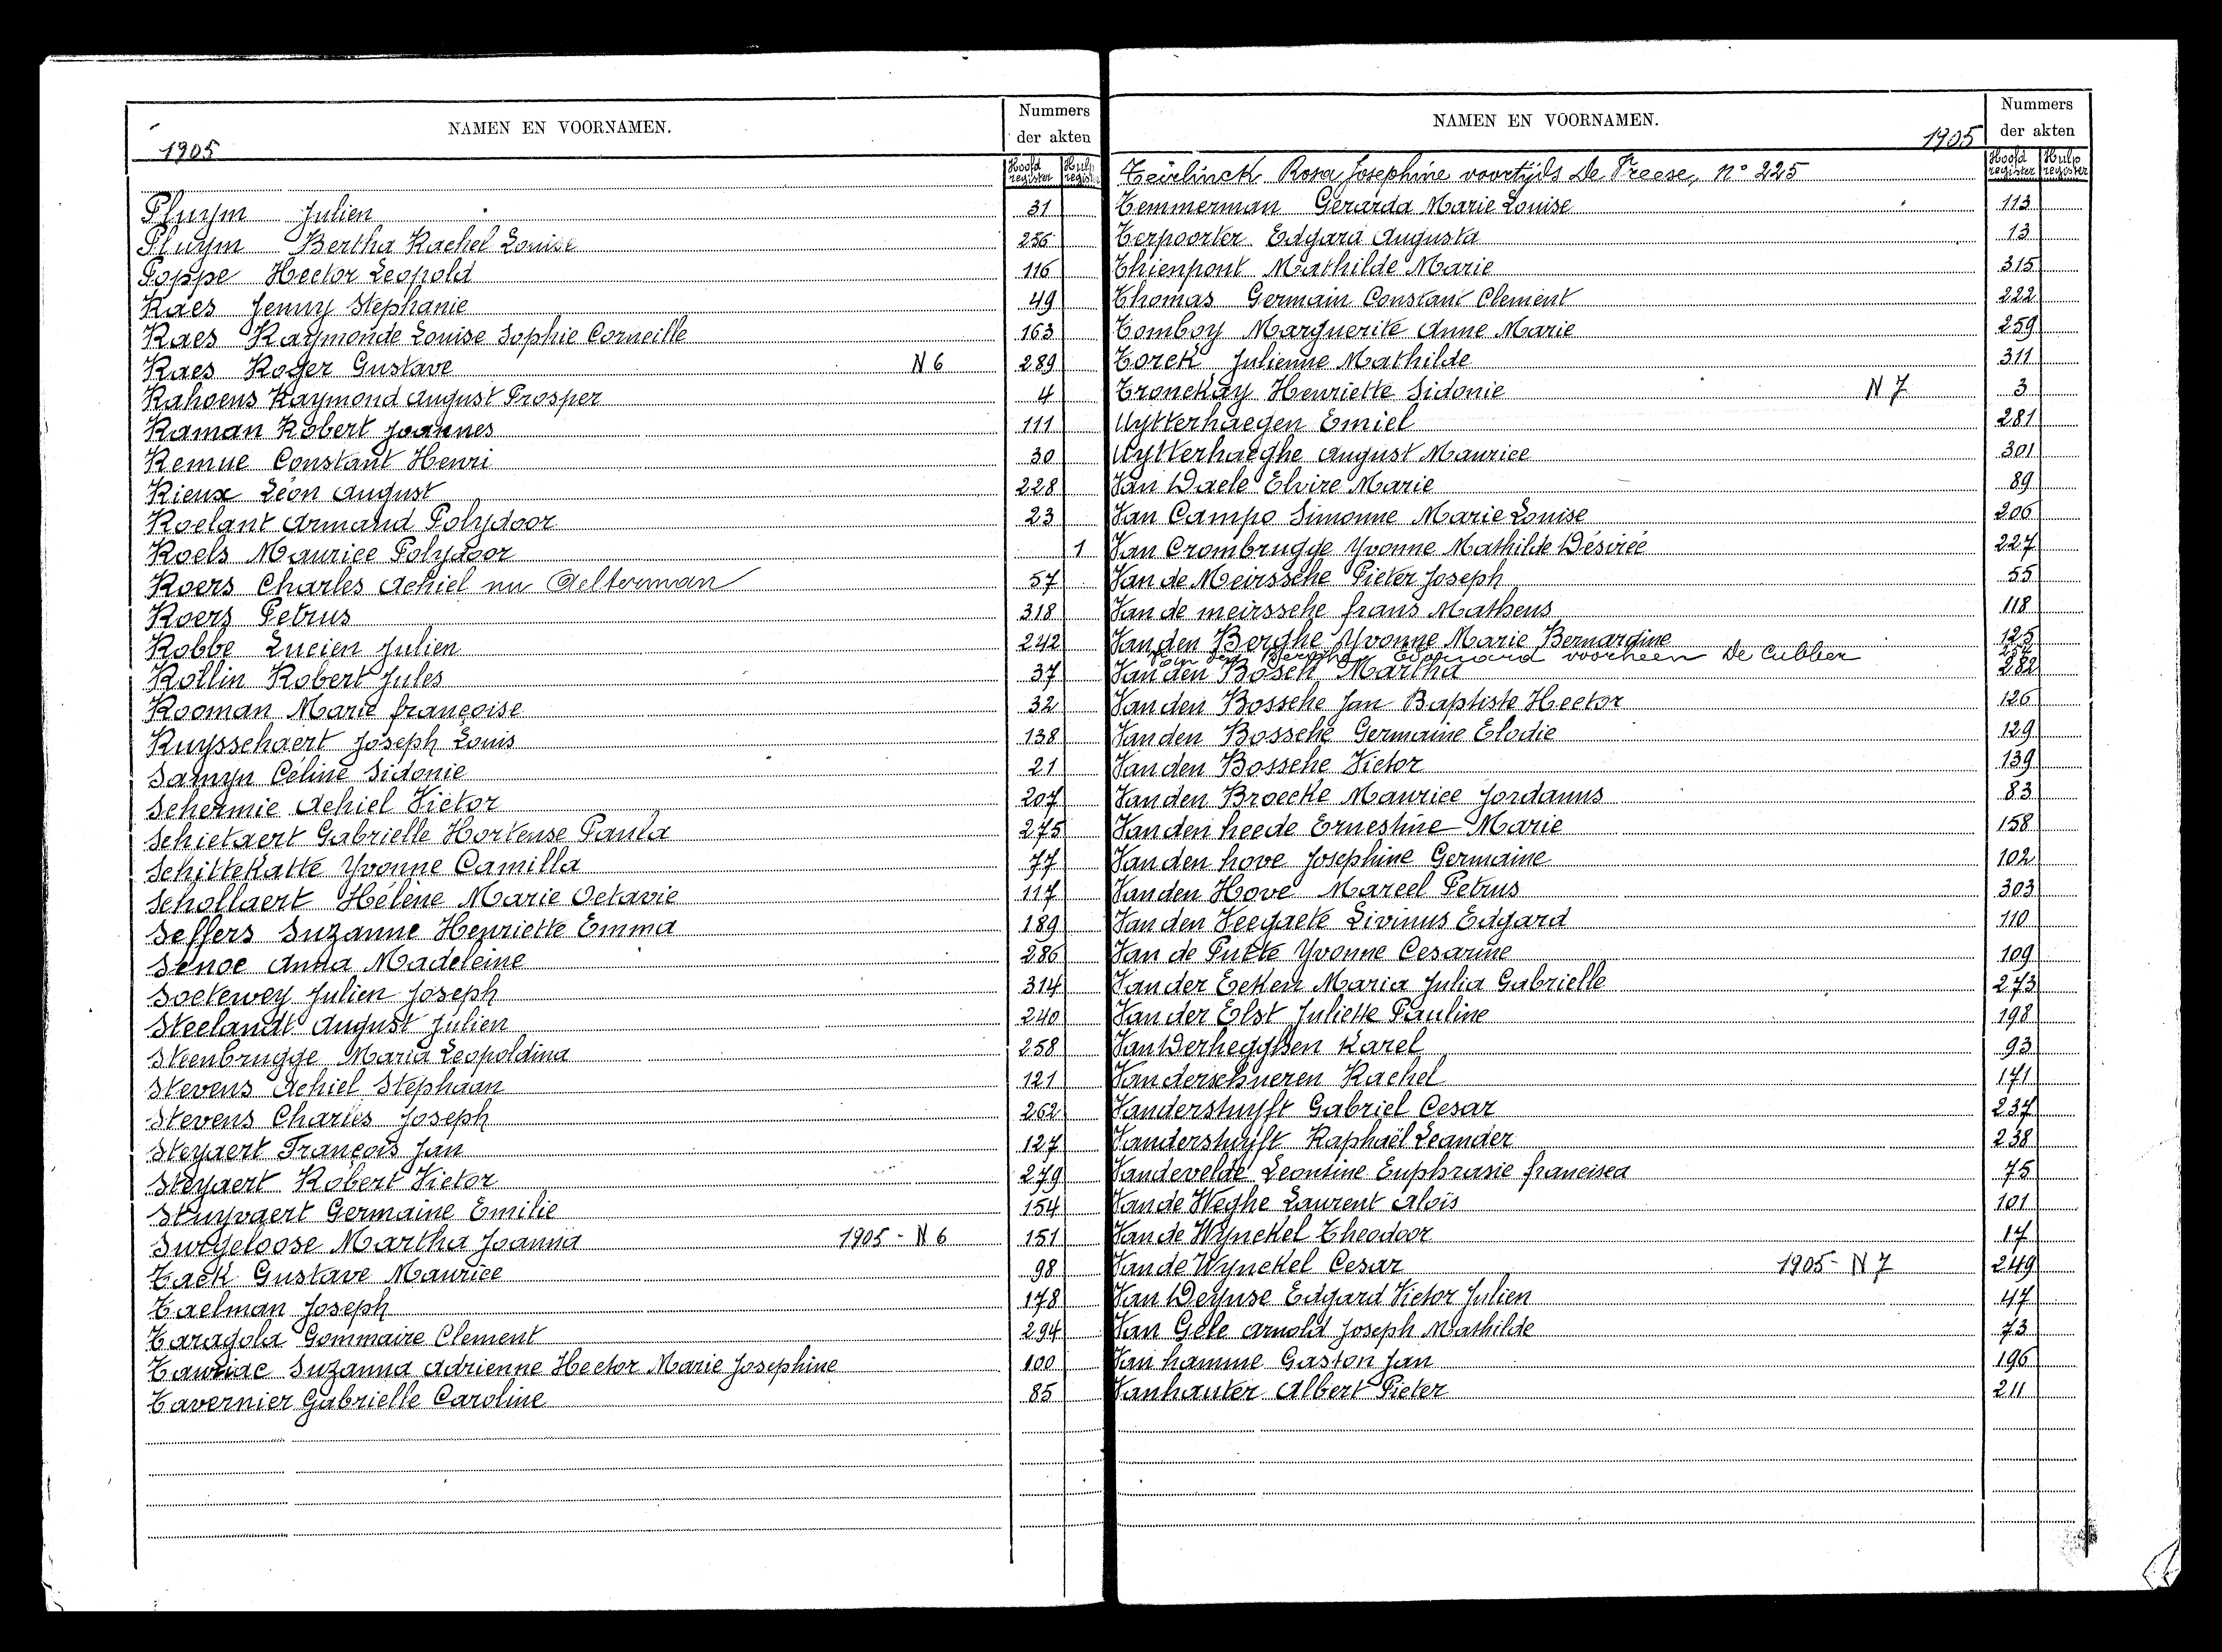 NAMEN EN VOORNAMEN.
1905
Nummers
der akten
Hoofd register
Hulp register
Pluym Julien 31
Pluym Bertha Rachel Louise 256
Poppe Hector Leopold 116
Raes Jenny Stephanie 49
Raes Raymonde Louise Sophie Corneille 163
Raes Roger Gustave N 6 289
Rahoens Raymond August Prosper 4
Raman Robert Joannes 111
Remue Constant Henri 30
Rieux Léon August 228
Roelant Armand Polydoor 23
Roels Maurice Polydoor 1
Roers Charles Achiel nu Aelterman 57
Roers Petrus 318
Robbe Lucien Julien 242
Rollin Robert Jules 37
Rooman Marie françoise 32
Ruysschaert Joseph Louis 138
Samyn Céline Sidonie 21
Schermie Achiel Victor 207
Schietaert Gabrielle Hortense Paula 275
Schittekatte Yvonne Camilla 77
Schollaert Hélène Marie Octavie 117
Seffers Suzanne Henriette Emma 189
Senoe Anna Madeleine 286
Soetewey Julien Joseph 314
Steelandt August Julien 240
Steenbrugge Maria Leopoldina 258
Stevens Achiel Stephaan 121
Stevens Charles Joseph 262
Steyaert François Jan 127
Steyaert Robert Victor 279
Stuyvaert Germaine Emilie 154
Surgeloose Martha Joanna 1905 - N 6 151
Tack Gustave Maurice 98
Taelman Joseph 178
Taragola Gommaire Clement 294
Tauriac Suzanna Adrienne Hector Marie Josephine 100
Tavernier Gabrielle Caroline 85
NAMEN EN VOORNAMEN.
1905
Nummers
der akten
Hoofd register
Hulp register
Teirlinck Rosa Josephine voortijds De Preese, n° 225
Temmerman Gerarda Marie Louise 113
Terpoorter Edgard Augusta 13
Thienpont Mathilde Marie 315
Thomas Germain Constant Clement 222
Tomboy Marguerite Anne Marie 259
Torck Julienne Mathilde 311
Tronckay Henriette Sidonie N 7 3
Uytterhaegen Emiel 281
Uytterhaeghe August Maurice 301
Van Daele Elvire Marie 89
Van Campo Simonne Marie Louise 206
Van Crombrugge Yvonne Mathilde Désirée 227
Van de Meirssche Pieter Joseph 55
Van de meirssche frans Matheus 118
Van den Berghe Yvonne Marie Bernardine 125
Van den Berghe Edouard voorheen De Cubber 254
Van den Bosch Martha 282
Van den Bossche Jan Baptiste Hector 126
Van den Bossche Germaine Elodie 129
Van den Bossche Victor 139
Van den Broecke Maurice Jordanus 83
Van den heede Ernestine Marie 158
Van den hove Josephine Germaine 102
Van den Hove Marcel Petrus 303
Van den Veegaete Livinus Edgard 110
Van de Putte Yvonne Cesarine 109
Van der Eeken Maria Julia Gabrielle 273
Van der Elst Juliette Pauline 198
Van Derheggben Karel 93
Van derschueren Rachel 171
Vanderstuyft Gabriel Cesar 237
Vanderstuyft Raphaël Leander 238
Vandevelde Leontine Euphrasie francisca 75
Van de Weghe Laurent Aloïs 101
Van de Wynckel Theodoor 17
Van de Wynckel Cesar 1905 - N 7 249
Van Deynse Edgard Victor Julien 47
Van Gele Arnold Joseph Mathilde 73
Van hamme Gaston Jan 196
Vanhauter Albert Pieter 211